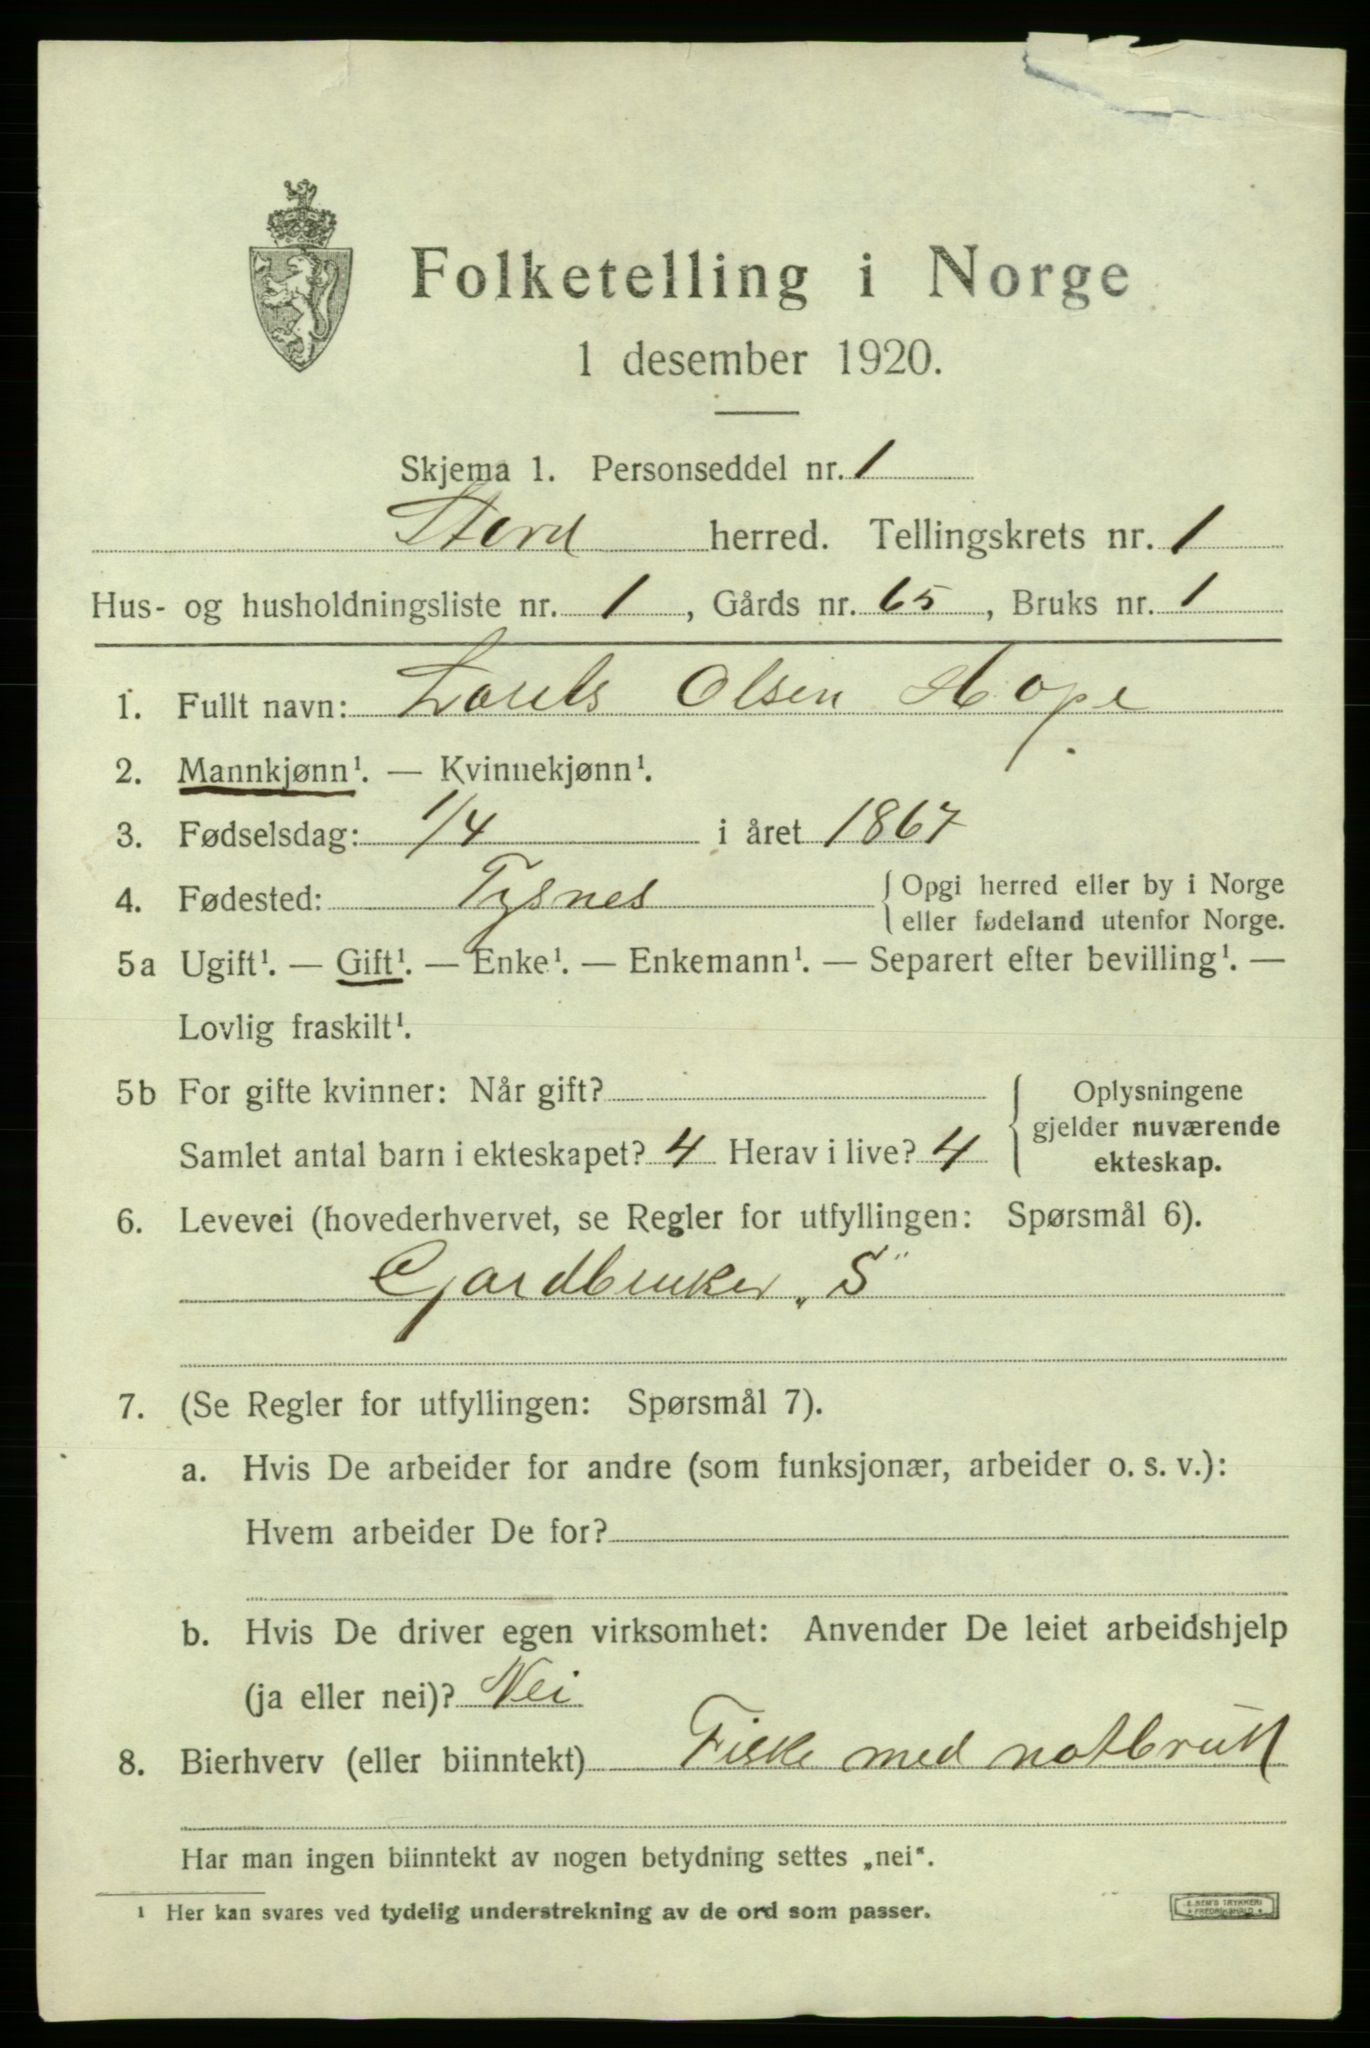 Folketelling i Norge
1 desember 1920.
Skjema 1. Personseddel nr. 1
Stord herred. Tellingskrets nr. 1
Hus- og husholdningsliste nr. 1, Gårds nr. 65, Bruks nr. 1
1. Fullt navn: Olsen Hope
2. Mannkjønn¹. — Kvinnekjønn¹.
3. Fødselsdag: 1/4 i året 1867
4. Fødested: Tysnes { Opgi herred eller by i Norge
eller fødeland utenfor Norge.
5a Ugift¹. — Gift¹. — Enke¹. — Enkemann¹. — Separert efter bevilling¹. —
Lovlig fraskilt¹.
5b For gifte kvinner: Når gift?
Samlet antal barn i ekteskapet? 4 Herav i live? 4
{ Oplysningene
gjelder nuværende
ekteskap.
6. Levevei (hovederhvervet, se Regler for utfyllingen: Spørsmål 6).
Gardbruker „S"
7. (Se Regler for utfyllingen: Spørsmål 7).
a. Hvis De arbeider for andre (som funksjonær, arbeider o. s. v.):
Hvem arbeider De for?
b. Hvis De driver egen virksomhet: Anvender De leiet arbeidshjelp
(ja eller nei)? Nei
8. Bierhverv (eller biinntekt) Fiske med notbruk
Har man ingen biinntekt av nogen betydning settes „nei".
¹ Her kan svares ved tydelig understrekning av de ord som passer.